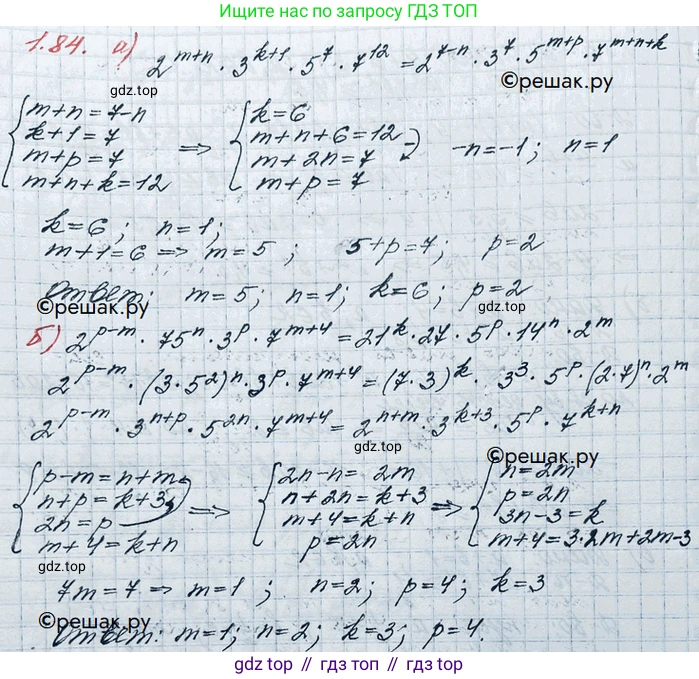 Ищите нас по запросу ГДЗ ТОП
1.84. а) 2^(m+n) · 3^(k+1) · 5^7 · 7^12 = 2^(7-n) · 3^7 · 5^(m+p) · 7^(m+n+k)
gdz.top
©решак.ру
m+n=7-n
k+1=7
m+p=7
m+n+k=12
=>
k=6
m+n+6=12
m+2n=7
m+p=7
-n=-1; n=1
k=6; n=1;
m+1=6 => m=5 ; 5+p=7; p=2
Ответ: m=5; n=1; k=6; p=2
©решак.ру
gdz.top
б) 2^(p-m) · 75^n · 3^p · 7^(m+4) = 21^k · 27 · 5^p · 14^n · 2^m
2^(p-m) · (3·5^2)^n · 3^p · 7^(m+4) = (7·3)^k · 3^3 · 5^p · (2·7)^n · 2^m
2^(p-m) · 3^(n+p) · 5^(2n) · 7^(m+4) = 2^(n+m) · 3^(k+3) · 5^p · 7^(k+n)
gdz.top
©решак.ру
p-m=n+m
n+p=k+3
2n=p
m+4=k+n
=>
2n-n=2m
n+2n=k+3
m+4=k+n
p=2n
=>
n=2m
p=2n
3n-3=k
m+4=3·2m+2m-3
gdz.top
7m=7 => m=1 ; n=2; p=4; k=3
©решак.ру
Ответ: m=1; n=2; k=3; p=4.
gdz.top // гдз топ // gdz.top